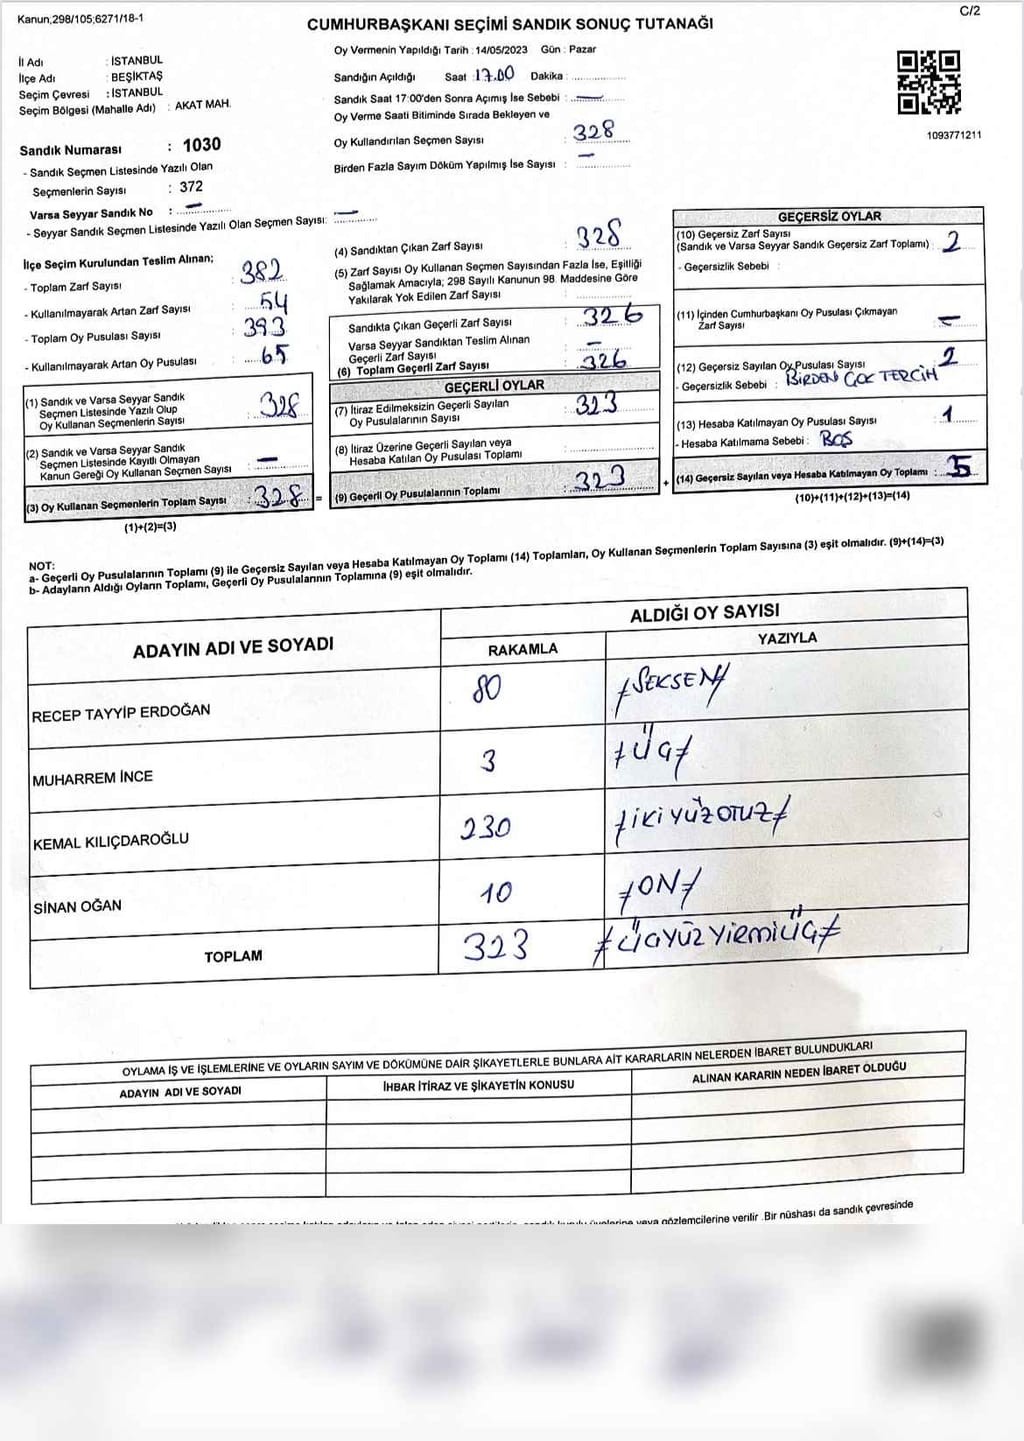 Kanun,298/105;6271/18-1
C/2
CUMHURBAŞKANI SEÇİMİ SANDIK SONUÇ TUTANAĞI
İl Adı : İSTANBUL
İlçe Adı : BEŞİKTAŞ
Seçim Çevresi : İSTANBUL
Seçim Bölgesi (Mahalle Adı) : AKAT MAH.
Sandık Numarası : 1030
- Sandık Seçmen Listesinde Yazılı Olan
Seçmenlerin Sayısı : 372
Varsa Seyyar Sandık No : —
- Seyyar Sandık Seçmen Listesinde Yazılı Olan Seçmen Sayısı: —
Oy Vermenin Yapıldığı Tarih : 14/05/2023 Gün : Pazar
Sandığın Açıldığı Saat : 17.00 Dakika :
Sandık Saat 17:00'den Sonra Açımış İse Sebebi : —
Oy Verme Saati Bitiminde Sırada Bekleyen ve
Oy Kullandırılan Seçmen Sayısı : 328
Birden Fazla Sayım Döküm Yapılmış İse Sayısı : —
1093771211
İlçe Seçim Kurulundan Teslim Alınan;
- Toplam Zarf Sayısı : 382
- Kullanılmayarak Artan Zarf Sayısı : 54
- Toplam Oy Pusulası Sayısı : 393
- Kullanılmayarak Artan Oy Pusulası : 65
(1) Sandık ve Varsa Seyyar Sandık
Seçmen Listesinde Yazılı Olup
Oy Kullanan Seçmenlerin Sayısı : 328
(2) Sandık ve Varsa Seyyar Sandık
Seçmen Listesinde Kayıtlı Olmayan
Kanun Gereği Oy Kullanan Seçmen Sayısı : —
(3) Oy Kullanan Seçmenlerin Toplam Sayısı : 328 =
(1)+(2)=(3)
(4) Sandıktan Çıkan Zarf Sayısı : 328
(5) Zarf Sayısı Oy Kullanan Seçmen Sayısından Fazla İse, Eşitliği
Sağlamak Amacıyla; 298 Sayılı Kanunun 98. Maddesine Göre
Yakılarak Yok Edilen Zarf Sayısı :
Sandıkta Çıkan Geçerli Zarf Sayısı : 326
Varsa Seyyar Sandıktan Teslim Alınan
Geçerli Zarf Sayısı : —
(6) Toplam Geçerli Zarf Sayısı : 326
GEÇERLİ OYLAR
(7) İtiraz Edilmeksizin Geçerli Sayılan
Oy Pusulalarının Sayısı : 323
(8) İtiraz Üzerine Geçerli Sayılan veya
Hesaba Katılan Oy Pusulası Toplamı :
(9) Geçerli Oy Pusulalarının Toplamı : 323 +
GEÇERSİZ OYLAR
(10) Geçersiz Zarf Sayısı
(Sandık ve Varsa Seyyar Sandık Geçersiz Zarf Toplamı) : 2
- Geçersizlik Sebebi :
(11) İçinden Cumhurbaşkanı Oy Pusulası Çıkmayan
Zarf Sayısı : —
(12) Geçersiz Sayılan Oy Pusulası Sayısı : 2
- Geçersizlik Sebebi : BİRDEN ÇOK TERCİH
(13) Hesaba Katılmayan Oy Pusulası Sayısı : 1
- Hesaba Katılmama Sebebi : BOŞ
(14) Geçersiz Sayılan veya Hesaba Katılmayan Oy Toplamı : 5
(10)+(11)+(12)+(13)=(14)
NOT:
a- Geçerli Oy Pusulalarının Toplamı (9) ile Geçersiz Sayılan veya Hesaba Katılmayan Oy Toplamı (14) Toplamları, Oy Kullanan Seçmenlerin Toplam Sayısına (3) eşit olmalıdır. (9)+(14)=(3)
b- Adayların Aldığı Oyların Toplamı, Geçerli Oy Pusulalarının Toplamına (9) eşit olmalıdır.
ADAYIN ADI VE SOYADI
ALDIĞI OY SAYISI
RAKAMLA YAZIYLA
RECEP TAYYİP ERDOĞAN 80 SEKSEN
MUHARREM İNCE 3 ÜÇ
KEMAL KILIÇDAROĞLU 230 İKİYÜZOTUZ
SİNAN OĞAN 10 ON
TOPLAM 323 ÜÇYÜZYİRMİÜÇ
OYLAMA İŞ VE İŞLEMLERİNE VE OYLARIN SAYIM VE DÖKÜMÜNE DAİR ŞİKAYETLERLE BUNLARA AİT KARARLARIN NELERDEN İBARET BULUNDUKLARI
ADAYIN ADI VE SOYADI İHBAR İTİRAZ VE ŞİKAYETİN KONUSU ALINAN KARARIN NEDEN İBARET OLDUĞU
veya gözlemcilerine verilir .Bir nüshası da sandık çevresinde